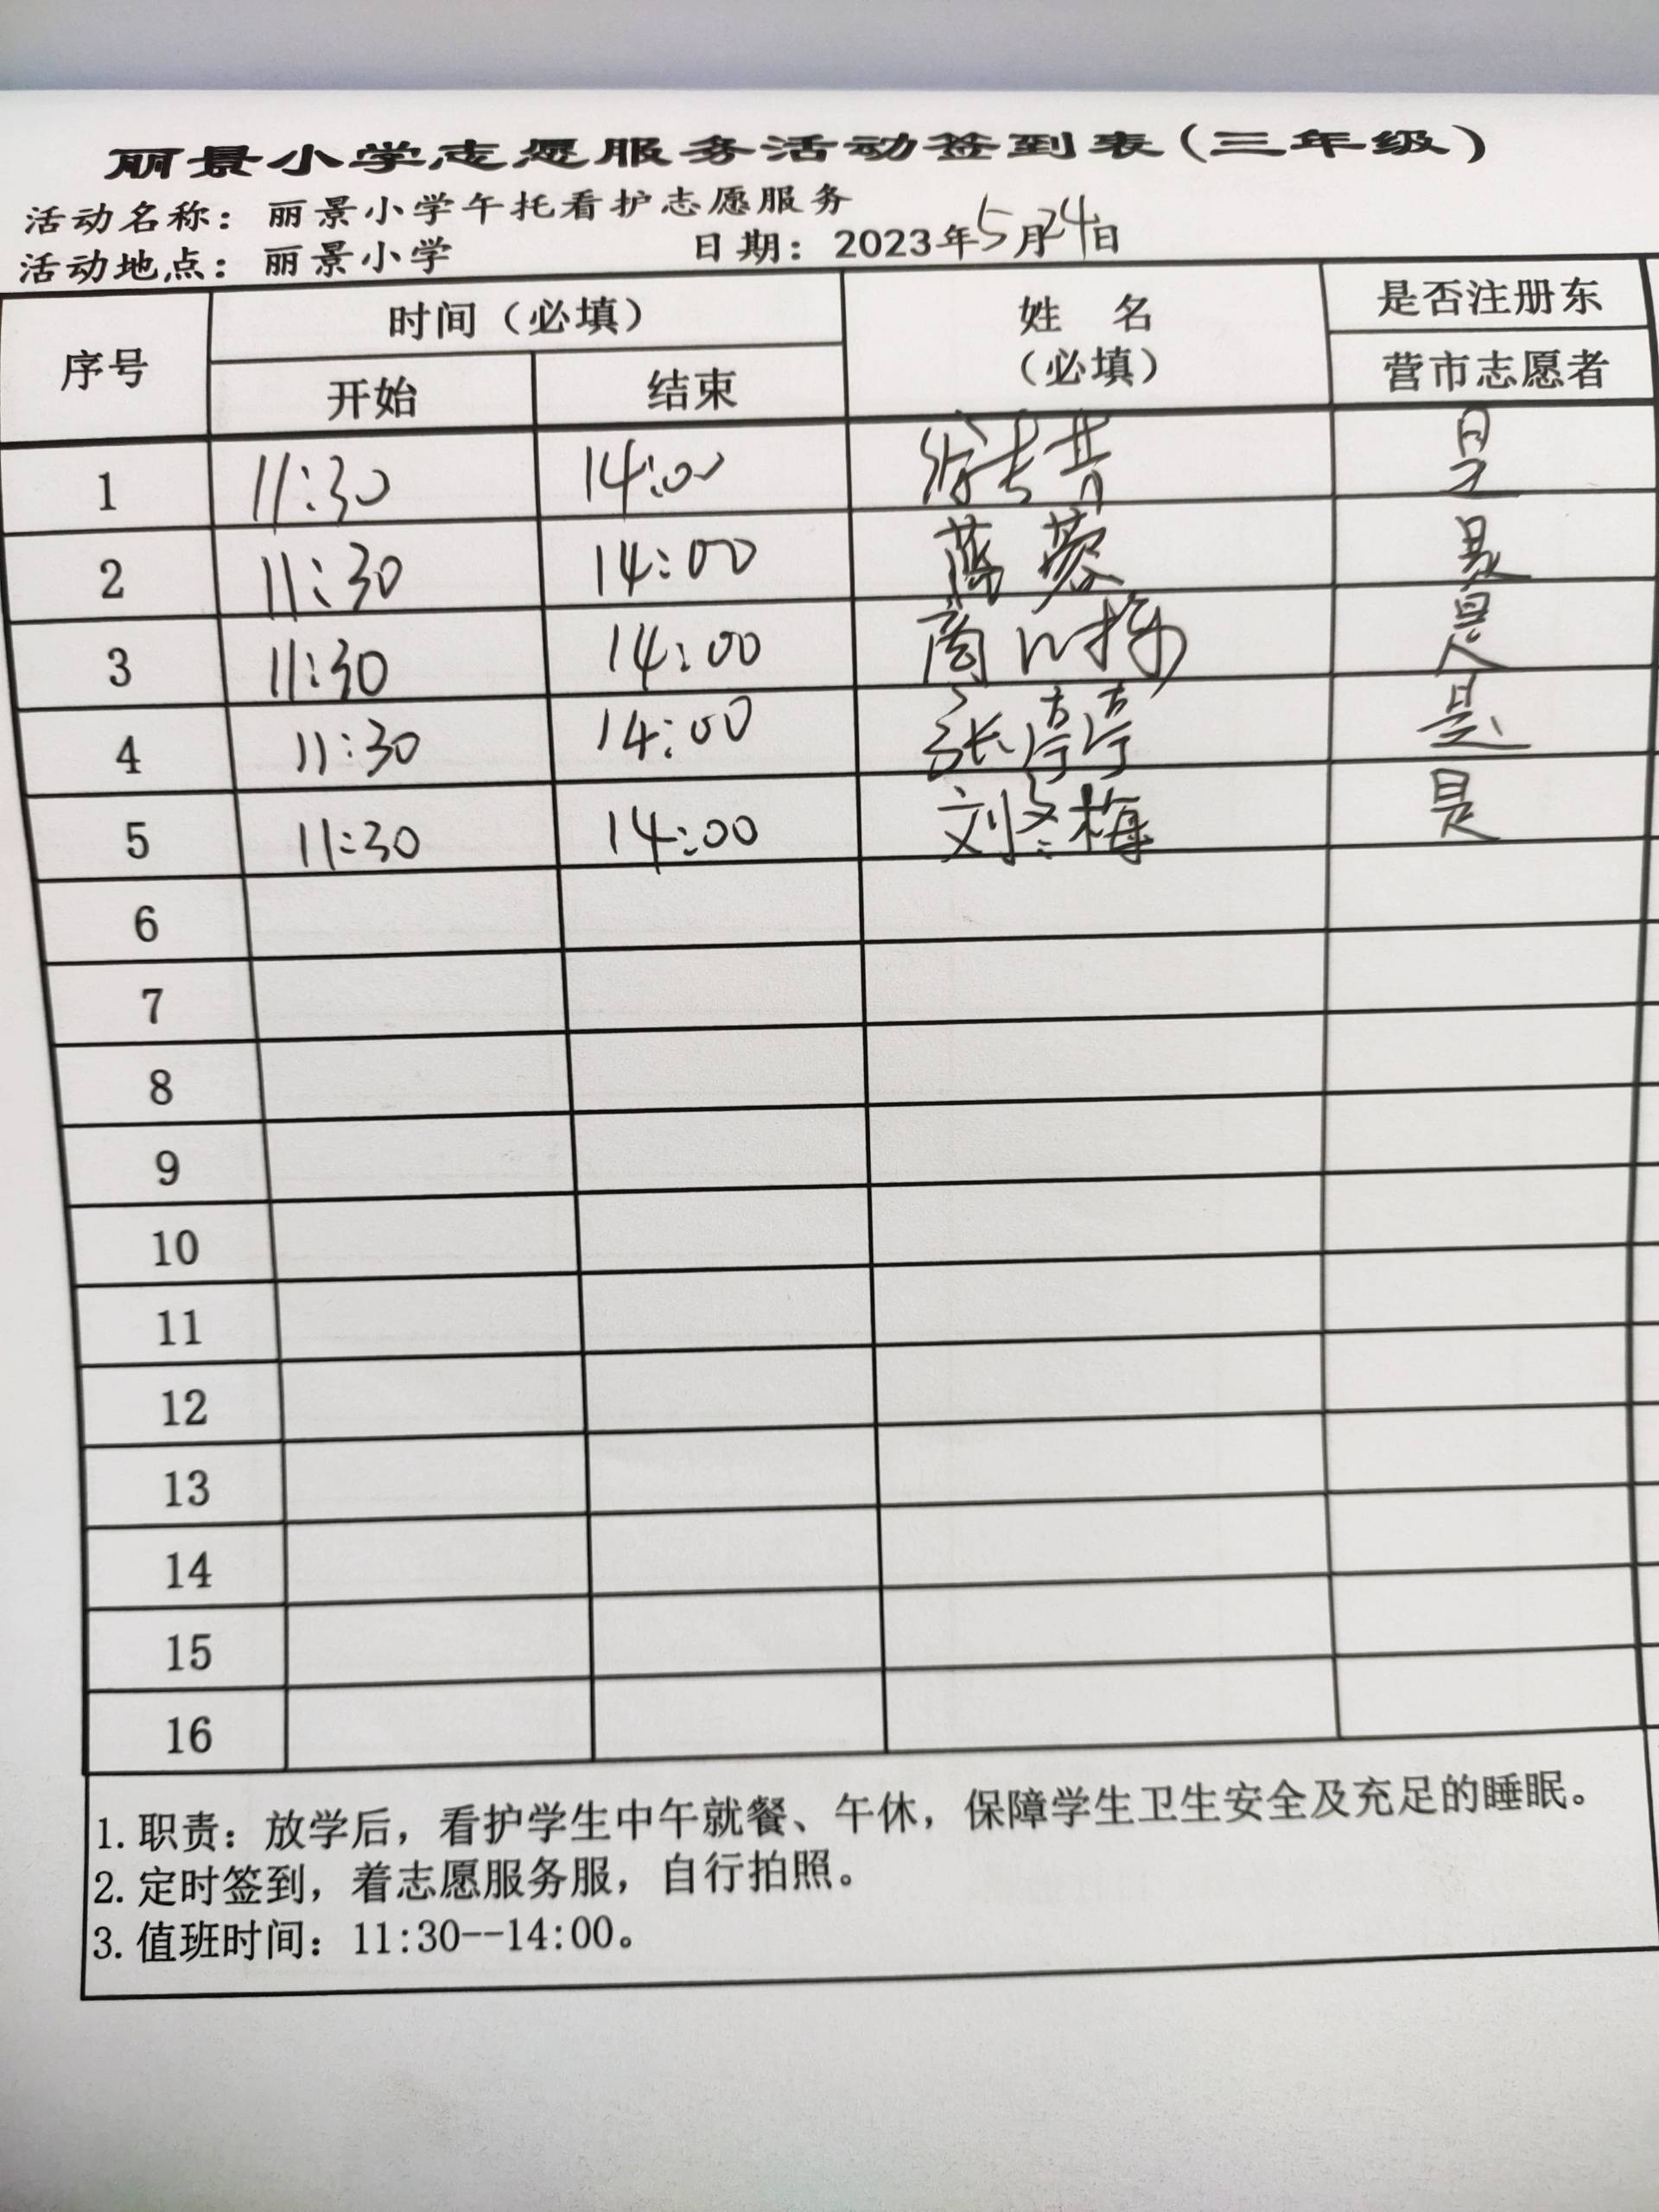 丽景小学志愿服务活动签到表(三年级)
活动名称：丽景小学午托看护志愿服务
活动地点：丽景小学 日期：2023年5月24日
序号 时间（必填） 姓 名（必填） 是否注册东营市志愿者
开始 结束
1 11:30 14:00 是
2 11:30 14:00 是
3 11:30 14:00 是
4 11:30 14:00 张婷婷 是
5 11:30 14:00 刘冬梅 是
6
7
8
9
10
11
12
13
14
15
16
1.职责：放学后，看护学生中午就餐、午休，保障学生卫生安全及充足的睡眠。
2.定时签到，着志愿服务服，自行拍照。
3.值班时间：11:30--14:00。